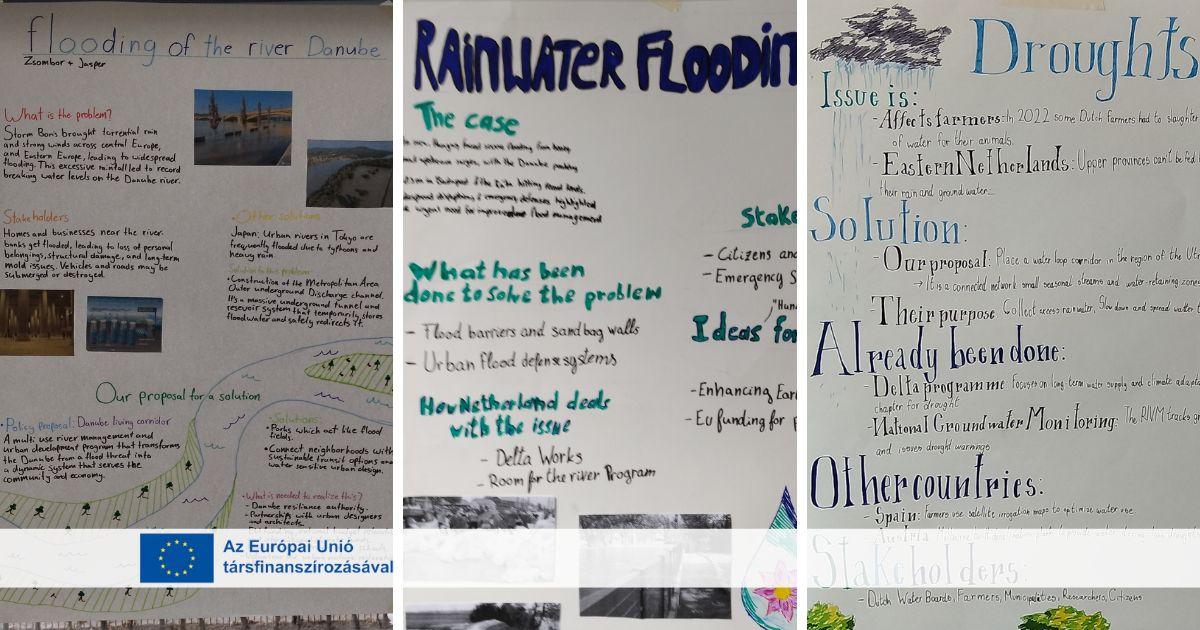 flooding of the river Danube
Zsombor + Jasper
What is the problem?
Storm Boris brought torrential rain
and strong winds across central Europe,
and Eastern Europe, leading to widespread
flooding. This excessive rainfall led to record
breaking water levels on the Danube river.
Stakeholders
Homes and businesses near the river
banks get flooded, leading to loss of personal
belongings, structural damage, and long-term
mold issues. Vehicles and roads may be
submerged or destroyed.
• Other solutions
Japan: Urban rivers in Tokyo are
frequently flooded due to typhoons and
heavy rain
Solution to this problem:
• Construction of the Metropolitan Area
Outer underground Discharge channel.
It's a massive underground tunnel and
resevoir system that temporarily stores
floodwater and safely redirects it.
Our proposal for a solution
Policy proposal: Danube living corridor
A multi use river management and
urban development program that transforms
the Danube from a flood threat into
a dynamic system that serves the
community and economy.
• Solutions:
• Parks which act like flood
fields.
• Connect neighborhoods with
sustainable transit options and
water sensitive urban design.
• What is needed to realize this?
- Danube resiliance authority.
- Partnerships with urban designers
and architects.
Az Európai Unió
társfinanszírozásával
RAINWATER FLOODIN
The case
flood management
What has been
done to solve the problem
- Flood barriers and sandbag walls
- Urban flood defense systems
How Netherland deals
with the issue
- Delta Works
- Room for the river Program
Stake
- Citizens and
- Emergency S
Ideas for
- Enhancing Ear
- Eu funding for
Droughts
Issue is:
- Affects farmers: In 2022 some Dutch farmers had to slaughter
of water for their animals.
- Eastern Netherlands: Upper provinces can't be fed
their rain and ground water...
Solution:
- Our proposal: Place a water loop corridor in the region of the Utr
→ It is a connected network small seasonal streams and water-retaining zone
- Their purpose Collect access rainwater, Slow down and spread water
Already been done:
- Delta programme Focuses on long-term water supply and climate adapta
chapter for drought
- National Groundwater Monitoring: The RIVM tracks
and issues drought warnings
Other countries:
- Spain: Farmers use satellite irrigation maps to optimise water use
Austria
Stakeholders:
- Dutch Water Boards, Farmers, Municipalities, Researchers, Citizens